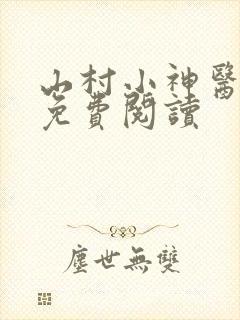 山村小神醫
免費閱讀
塵世無雙